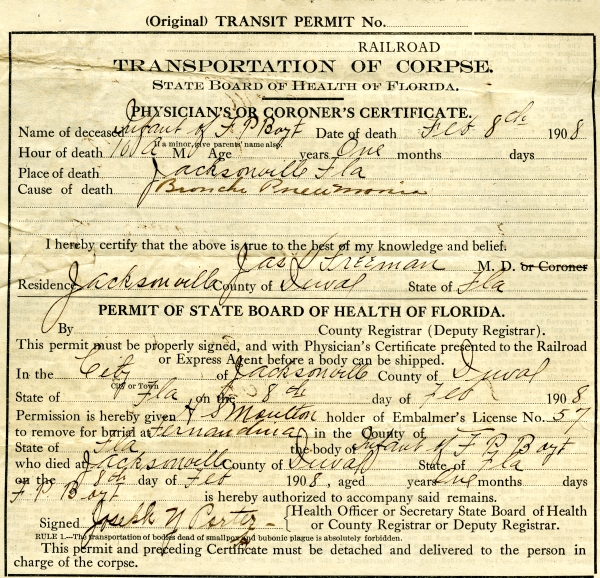 (Original) TRANSIT PERMIT No.
RAILROAD
TRANSPORTATION OF CORPSE.
STATE BOARD OF HEALTH OF FLORIDA.
PHYSICIAN'S OR CORONER'S CERTIFICATE.
Name of deceased Infant of F. P. Boyt Date of death Feb 8th 1908
If a minor, give parents' name also.
Hour of death 10 A M. Age years One months days
Place of death Jacksonville Fla
Cause of death Broncho Pneumonia
I hereby certify that the above is true to the best of my knowledge and belief.
Jas Freeman M. D. or Coroner
Residence Jacksonville County of Duval State of Fla
PERMIT OF STATE BOARD OF HEALTH OF FLORIDA.
By County Registrar (Deputy Registrar).
This permit must be properly signed, and with Physician's Certificate presented to the Railroad
or Express Agent before a body can be shipped.
In the City of Jacksonville County of Duval
City or Town
State of Fla, on the 8th day of Feb 1908
Permission is hereby given H S Moulton holder of Embalmer's License No. 57
to remove for burial at Fernandina in the County of
State of Fla the body of Infant of F. P. Boyt
who died at Jacksonville County of Duval State of Fla
on the 8th day of Feb 1908, aged years One months days
F. P. Boyt is hereby authorized to accompany said remains.
Signed Joseph Y Porter {Health Officer or Secretary State Board of Health
or County Registrar or Deputy Registrar.
RULE 1.—The transportation of bodies dead of smallpox and bubonic plague is absolutely forbidden.
This permit and preceding Certificate must be detached and delivered to the person in
charge of the corpse.